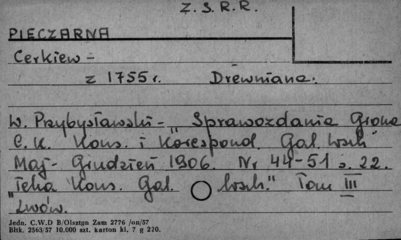 Z. S. R. R.
PIECZARNA
Cerkiew -
z 1755 r. Drewniana.
W. Przybysławski - "Sprawozdania Grona
C. K. Kons. i Korespond. Gal. Wsch"
Maj - Grudzień 1906. Nr 44-51 s. 22.
"Teka Kons. Gal. Wsch." Tom III
Lwów.
Jedn. C.W.D B/Olsztyn Zam 2776 /on/57
Bltk. 2563/57 10.000 szt. karton kl. 7 g 220.